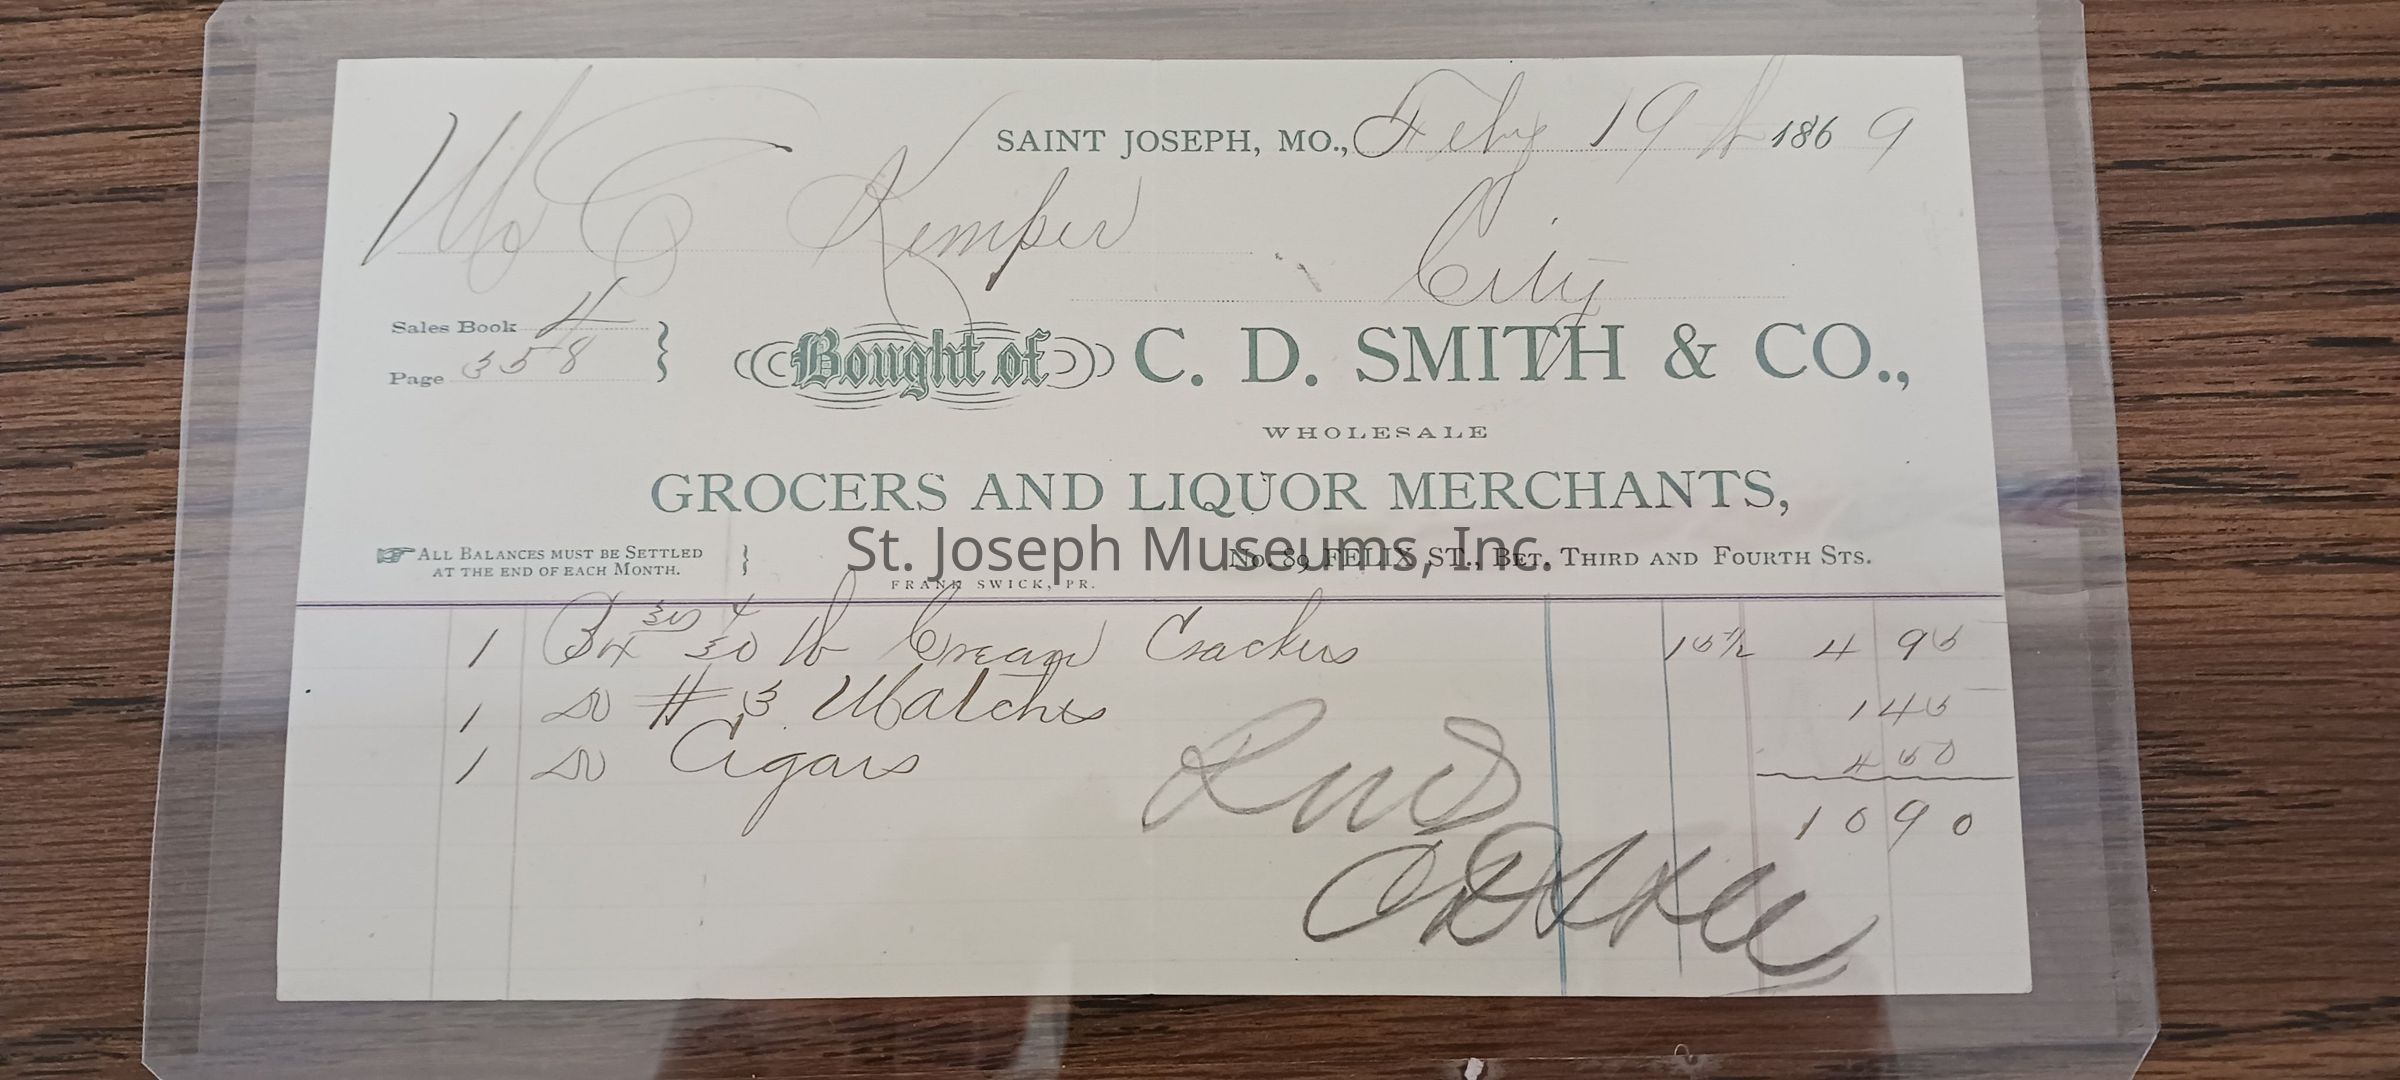 SAINT JOSEPH, MO., Feby 19th 1869
Kemper
City
Sales Book 4
Page 358
Bought of C. D. SMITH & CO.,
WHOLESALE
GROCERS AND LIQUOR MERCHANTS,
St. Joseph Museums, Inc.
ALL BALANCES MUST BE SETTLED
AT THE END OF EACH MONTH.
No. 89 FELIX ST., BET. THIRD AND FOURTH STS.
FRANK SWICK, PR.
1 Bx 30 lb Cream Crackers 4 95
1 Do # 3 Matches 1 45
1 Do Cigars 4 50
10 90